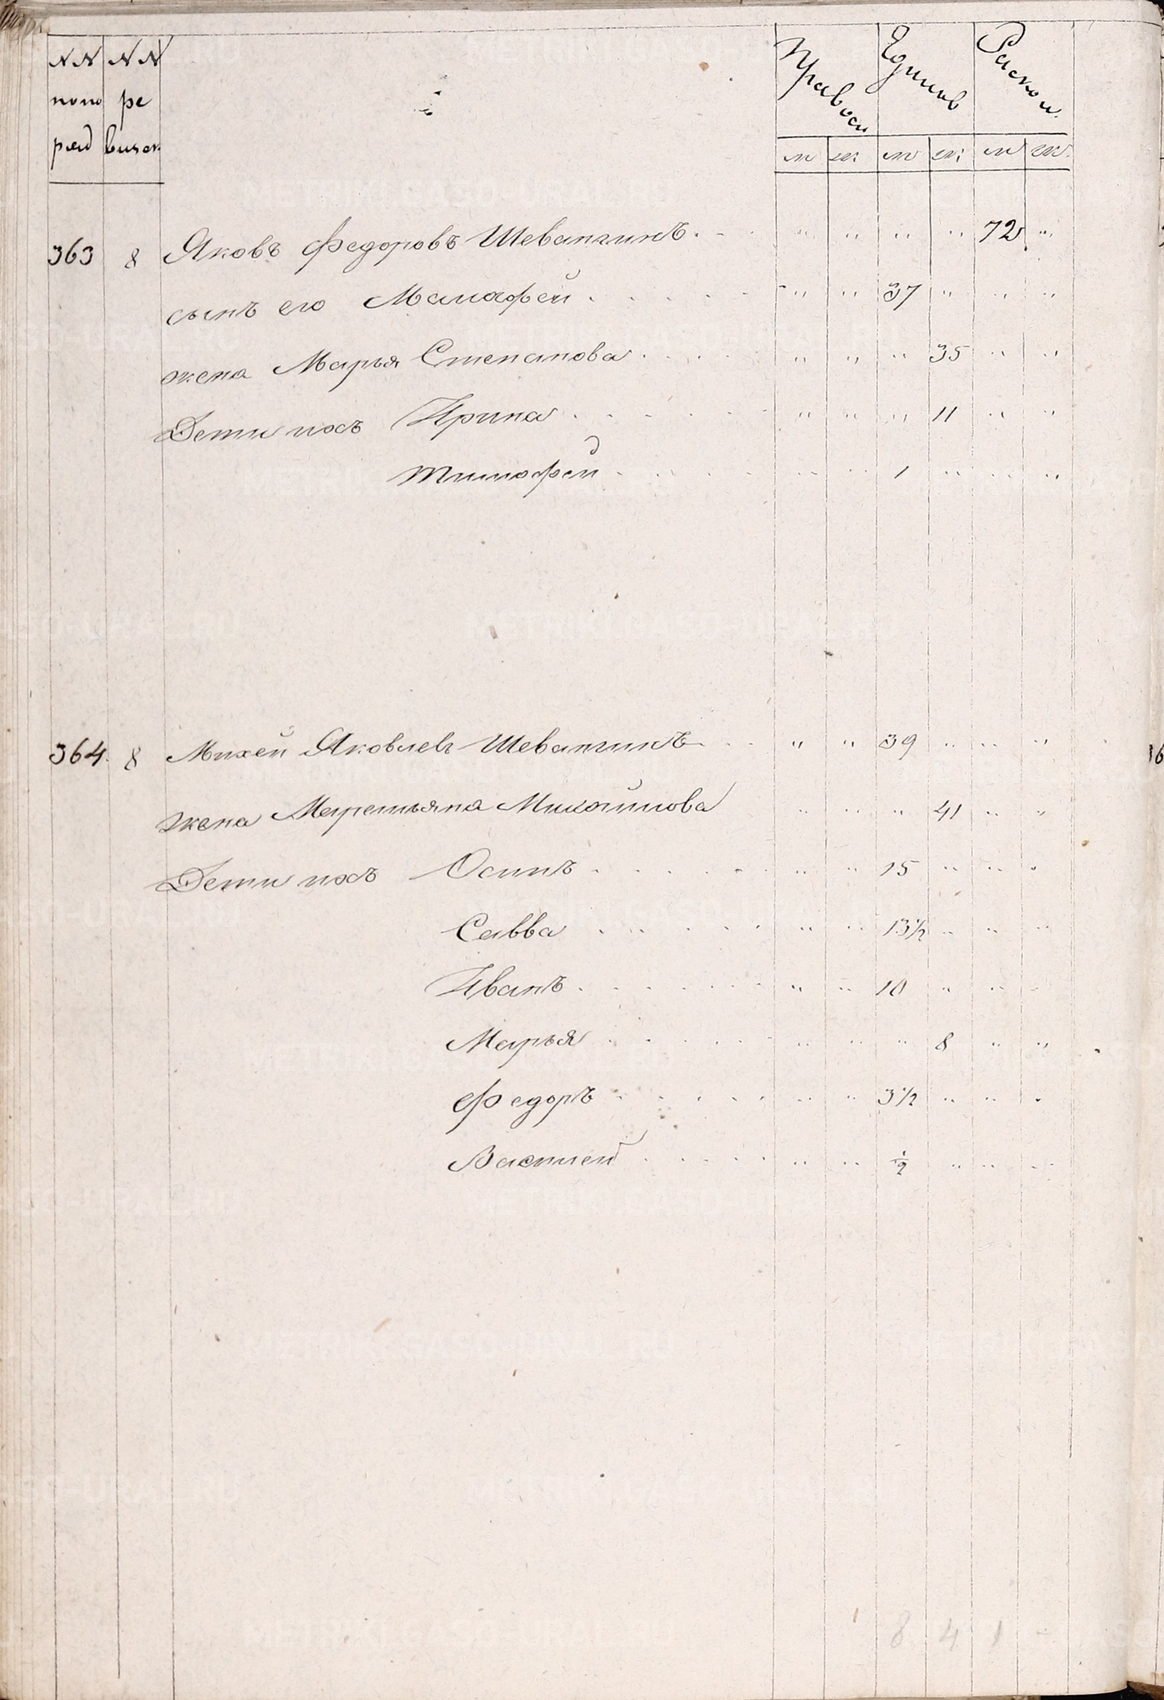 NN NN Правосл Единов Раскол.
поло ре
ряд визск м ж м ж м ж
363 8 Яковъ Федоровъ Шевангинъ. " " " " 72 "
сынъ его Малафей " " 37 " " "
жена Марья Степанова " " " 35 " "
Дети ихъ Ирина " " " 11 " "
Тимофей " " 1 " " "
364. 8 Михей Яковлевъ Шевангинъ " " 39 " " "
жена Меремьяна Михайлова " " " 41 " "
Дети ихъ Осипъ " " 15 " " "
Савва " " 13½ " " "
Иванъ " " 10 " " "
Марья " " " 8 " "
Федоръ " " 3½ " " "
Василей " " ½ " " "
8 4 1